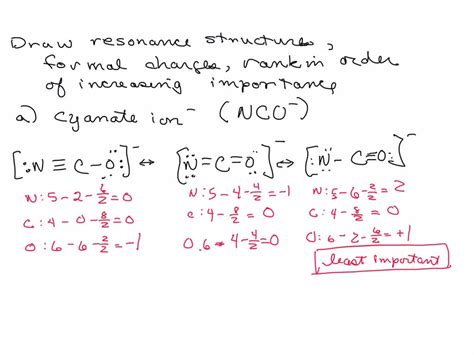 Draw resonance structures,
formal charges, rank in order
of increasing importance
a) cyanate ion⁻ (NCO⁻)
[:N≡C-Ö:]⁻ ↔ [N̈=C=Ö]⁻ ↔ [:N̈-C≡O:]⁻
N: 5-2-6/2=0 N: 5-4-4/2=-1 N: 5-6-2/2=2
C: 4-0-8/2=0 C: 4-8/2=0 C: 4-8/2=0
O: 6-6-2/2=-1 O: 6-4-4/2=0 O: 6-2-6/2=+1
least important